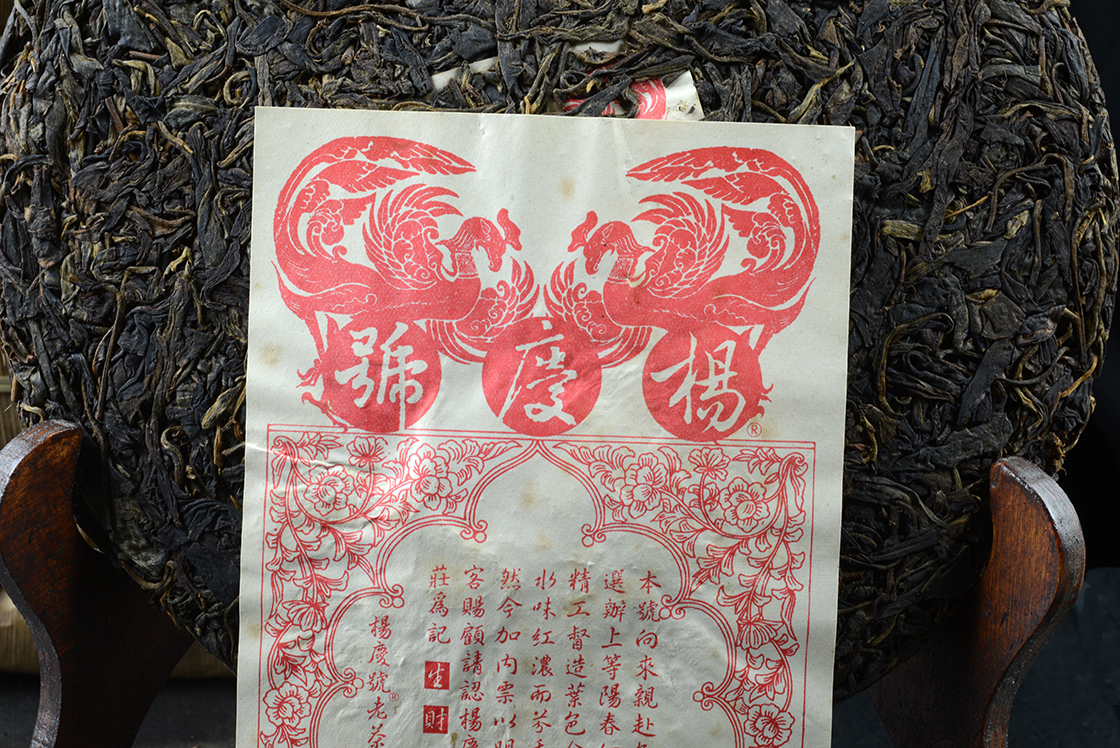 楊慶號®
本號向來親赴
選辦上等陽春
精工督造葉色
水味紅濃而芬
然今加內票以
客賜顧請認楊
莊爲記 生財
楊慶號®老茶